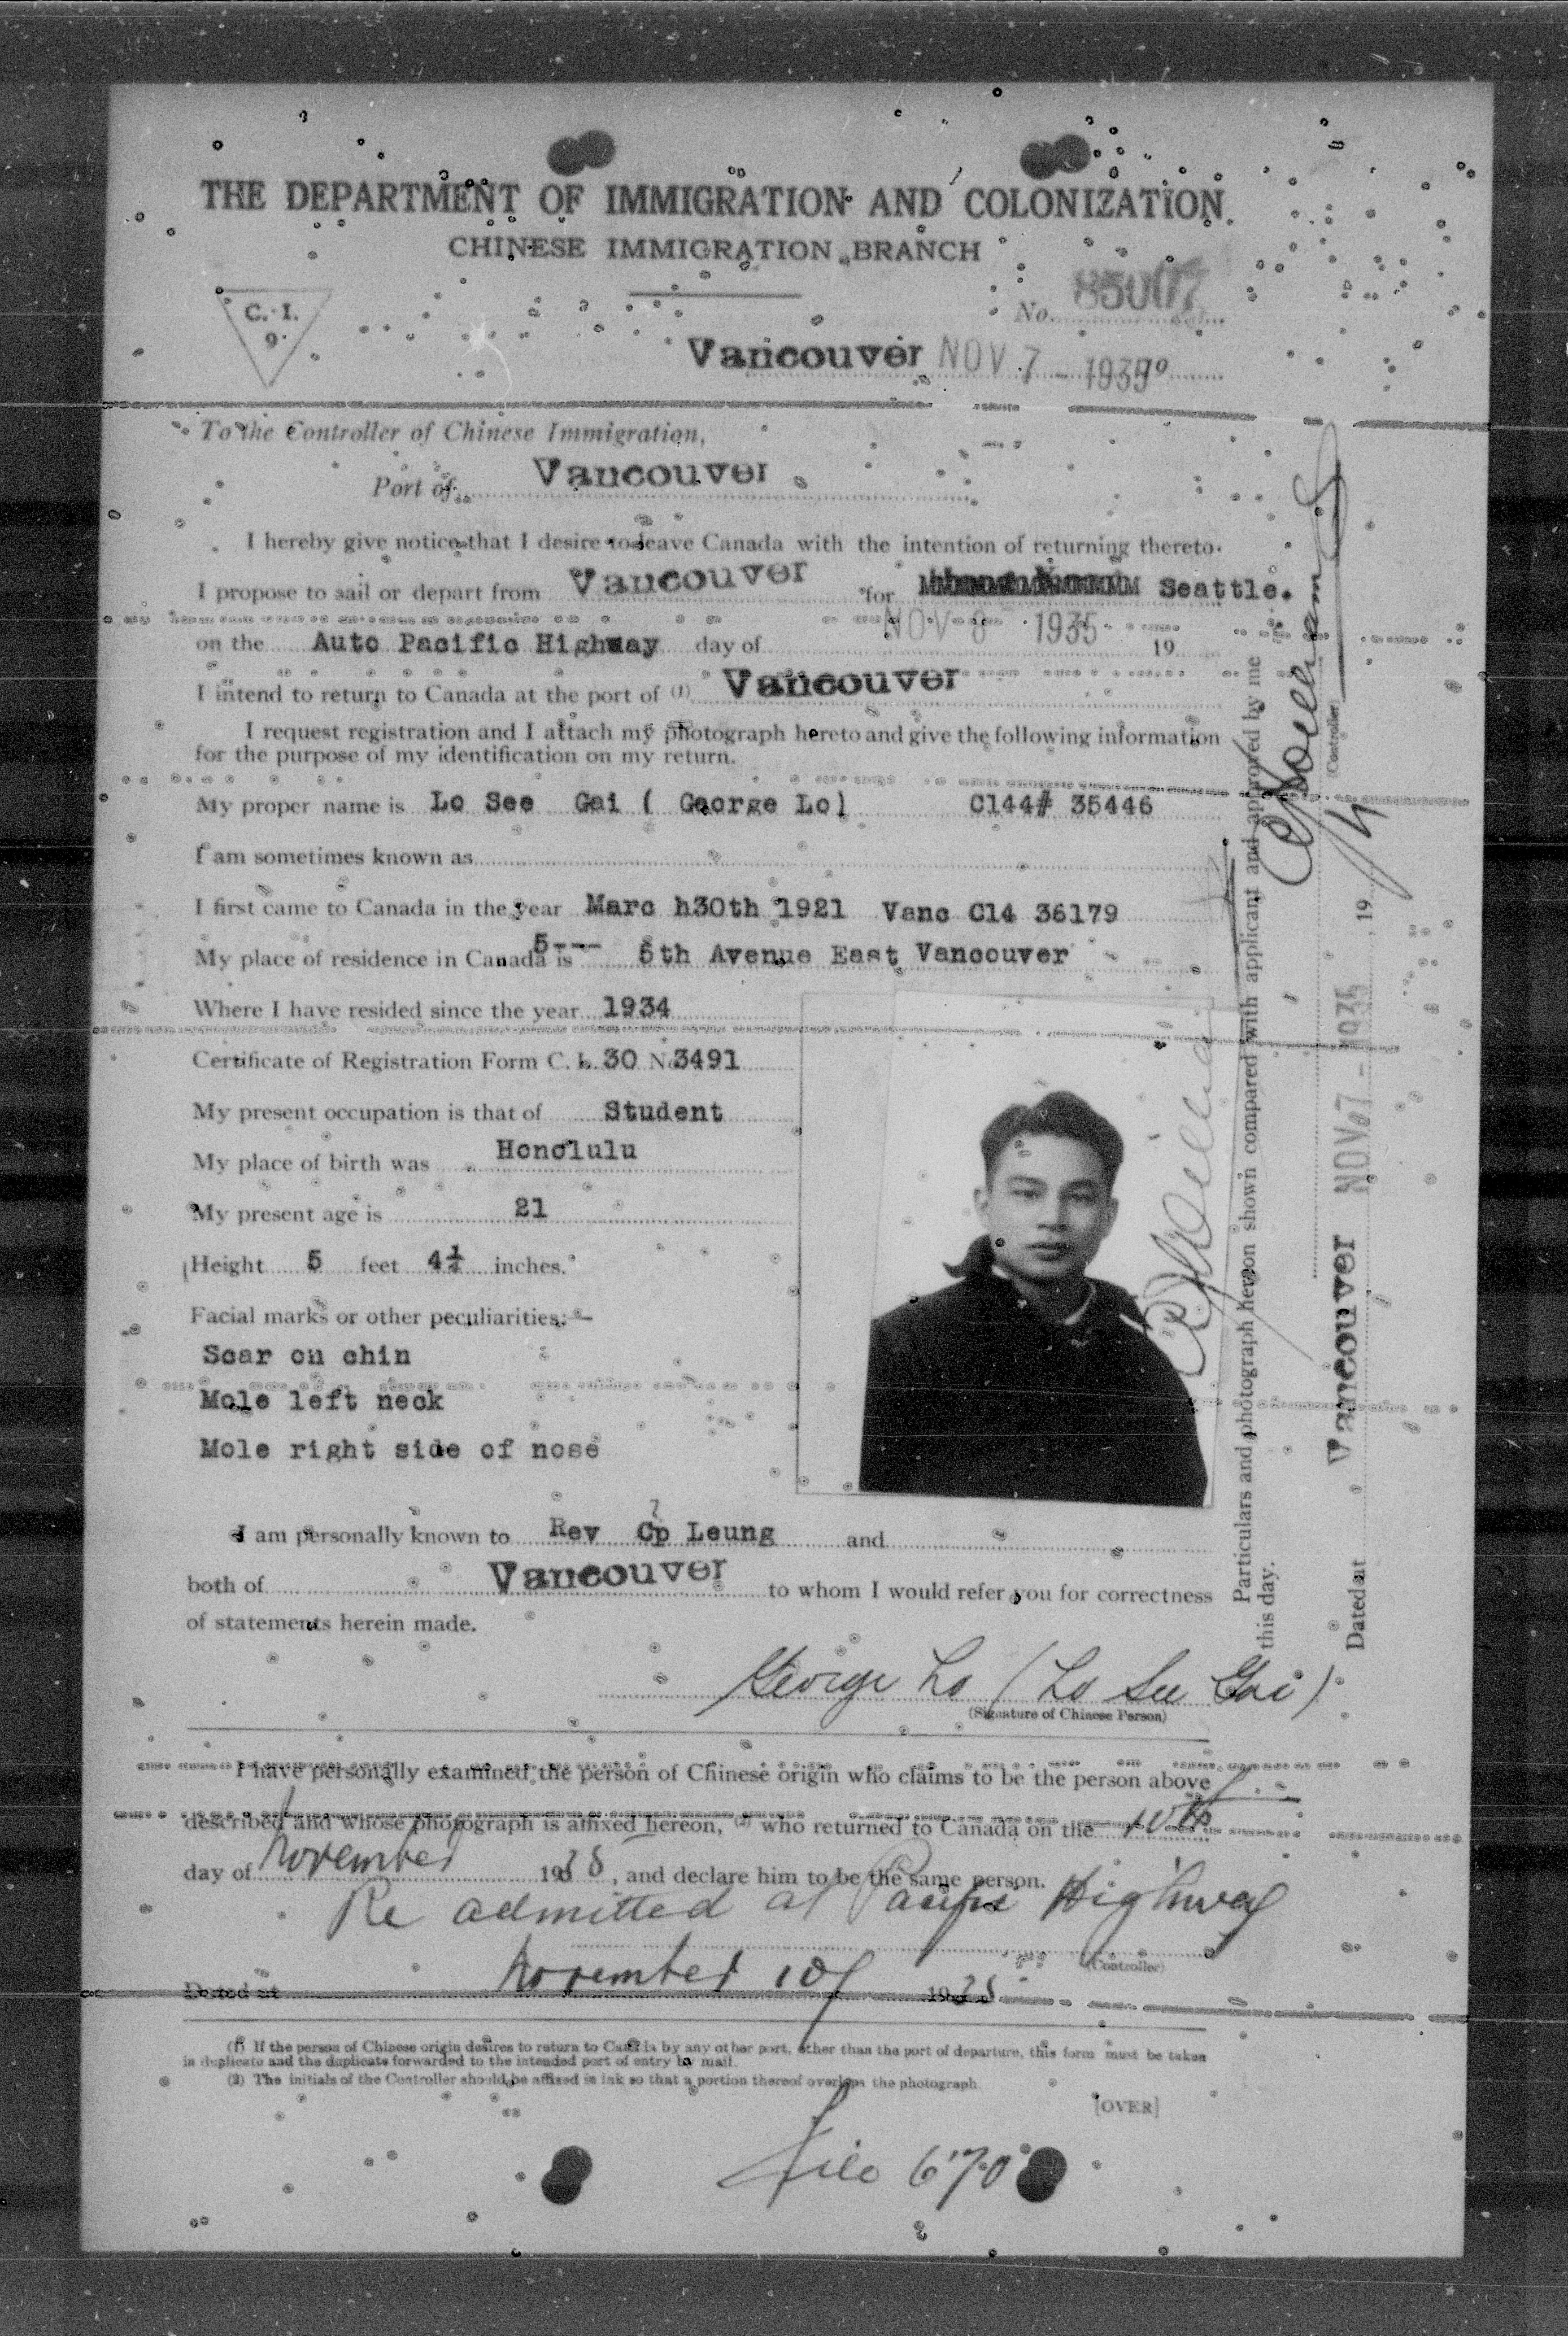 THE DEPARTMENT OF IMMIGRATION AND COLONIZATION
CHINESE IMMIGRATION BRANCH
C. I.
9
No. 85007
Vancouver NOV 7 - 1935
To the Controller of Chinese Immigration,
Port of Vancouver
I hereby give notice that I desire to leave Canada with the intention of returning thereto.
I propose to sail or depart from Vancouver for Seattle.
on the Auto Pacific Highway day of NOV 8 1935 19
I intend to return to Canada at the port of (1) Vancouver
I request registration and I attach my photograph hereto and give the following information
for the purpose of my identification on my return.
My proper name is Lo See Gai ( George Lo) C144# 35446
I am sometimes known as
I first came to Canada in the year Marc h30th 1921 Vanc C14 36179
My place of residence in Canada is 5--- 5th Avenue East Vancouver
Where I have resided since the year 1934
Certificate of Registration Form C. I. 30 No 3491
My present occupation is that of Student
My place of birth was Honolulu
My present age is 21
Height 5 feet 4½ inches.
Facial marks or other peculiarities:—
Scar on chin
Mole left neck
Mole right side of nose
I am personally known to Rev Cp Leung and
both of Vancouver to whom I would refer you for correctness
of statements herein made.
George Lo (Lo See Gai)
(Signature of Chinese Person)
I have personally examined the person of Chinese origin who claims to be the person above
described and whose photograph is affixed hereon, (2) who returned to Canada on the 10th
day of November 1935, and declare him to be the same person.
Re admitted at Pacific Highway
(Controller)
Dated at November 10/ 1935
(1) If the person of Chinese origin desires to return to Canada by any other port, other than the port of departure, this form must be taken
in duplicate and the duplicate forwarded to the intended port of entry by mail.
(2) The initials of the Controller should be affixed in ink so that a portion thereof overlaps the photograph.
[OVER]
file 670
Particulars and photograph hereon shown compared with applicant and approved by me
this day.
(Controller)
Dated at Vancouver NOV 7 - 1935, 19